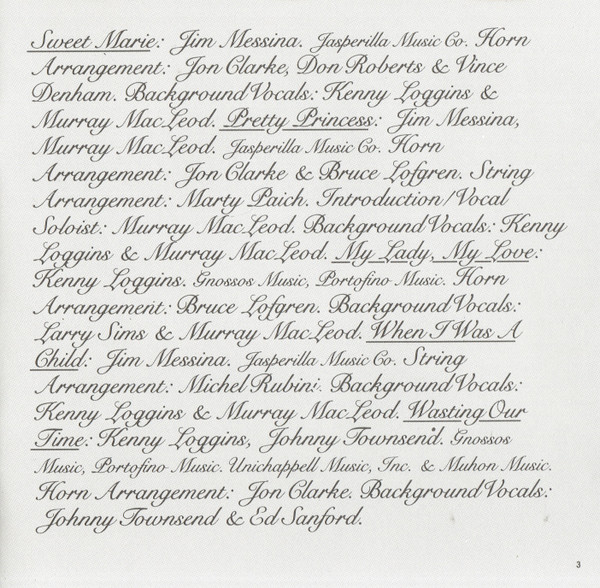 Sweet Marie: Jim Messina. Jasperilla Music Co. Horn
Arrangement: Jon Clarke, Don Roberts & Vince
Denham. Background Vocals: Kenny Loggins &
Murray MacLeod. Pretty Princess: Jim Messina,
Murray MacLeod. Jasperilla Music Co. Horn
Arrangement: Jon Clarke & Bruce Lofgren. String
Arrangement: Marty Paich. Introduction/Vocal
Soloist: Murray MacLeod. Background Vocals: Kenny
Loggins & Murray MacLeod. My Lady, My Love:
Kenny Loggins. Gnossos Music, Portofino Music. Horn
Arrangement: Bruce Lofgren. Background Vocals:
Larry Sims & Murray MacLeod. When I Was A
Child: Jim Messina. Jasperilla Music Co. String
Arrangement: Michel Rubini. Background Vocals:
Kenny Loggins & Murray MacLeod. Wasting Our
Time: Kenny Loggins, Johnny Townsend. Gnossos
Music, Portofino Music. Unichappell Music, Inc. & Muhon Music.
Horn Arrangement: Jon Clarke. Background Vocals:
Johnny Townsend & Ed Sanford.
3